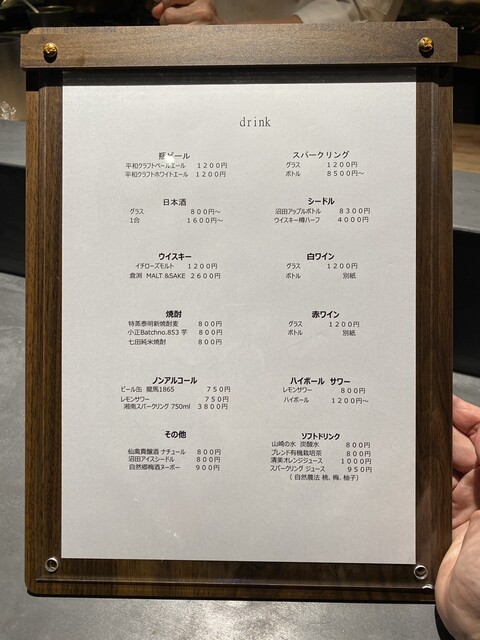 drink
瓶ビール
平和クラフトペールエール 1200円
平和クラフトホワイトエール 1200円
スパークリング
グラス 1200円
ボトル 8500円〜
日本酒
グラス 800円〜
1合 1600円〜
シードル
沼田アップルボトル 8300円
ウイスキー樽ハーフ 4000円
ウイスキー
イチローズモルト 1200円
倉渕 MALT &SAKE 2600円
白ワイン
グラス 1200円
ボトル 別紙
焼酎
特蒸泰明新焼酎麦 800円
小正Batchno.853 芋 800円
七田純米焼酎 800円
赤ワイン
グラス 1200円
ボトル 別紙
ノンアルコール
ビール缶 龍馬1865 750円
レモンサワー 750円
湘南スパークリング 750ml 3800円
ハイボール サワー
レモンサワー 800円
ハイボール 1200円〜
その他
仙禽貴醸酒 ナチュール 800円
沼田アイスシードル 800円
自然郷梅酒ヌーボー 900円
ソフトドリンク
山崎の水 炭酸水 800円
ブレンド有機栽培茶 800円
清美オレンジジュース 1000円
スパークリング ジュース 950円
(自然農法 桃、梅、柚子)